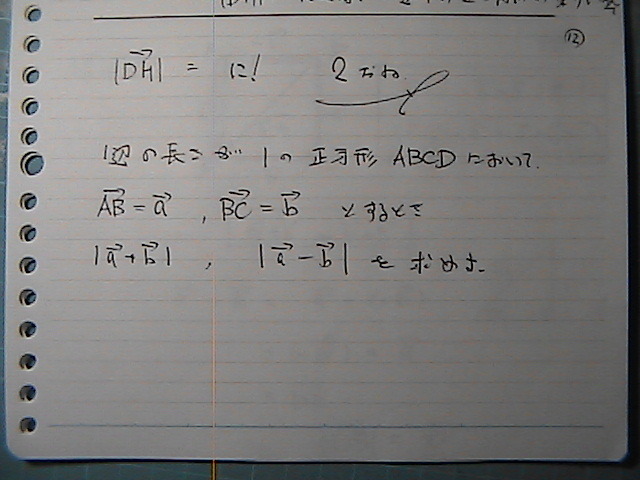 ⑫
|DH→| = に! 2だね
1辺の長さが1の正方形ABCDにおいて、
AB→=a→, BC→=b→ とするとき
|a→+b→|, |a→-b→| を求めよ。